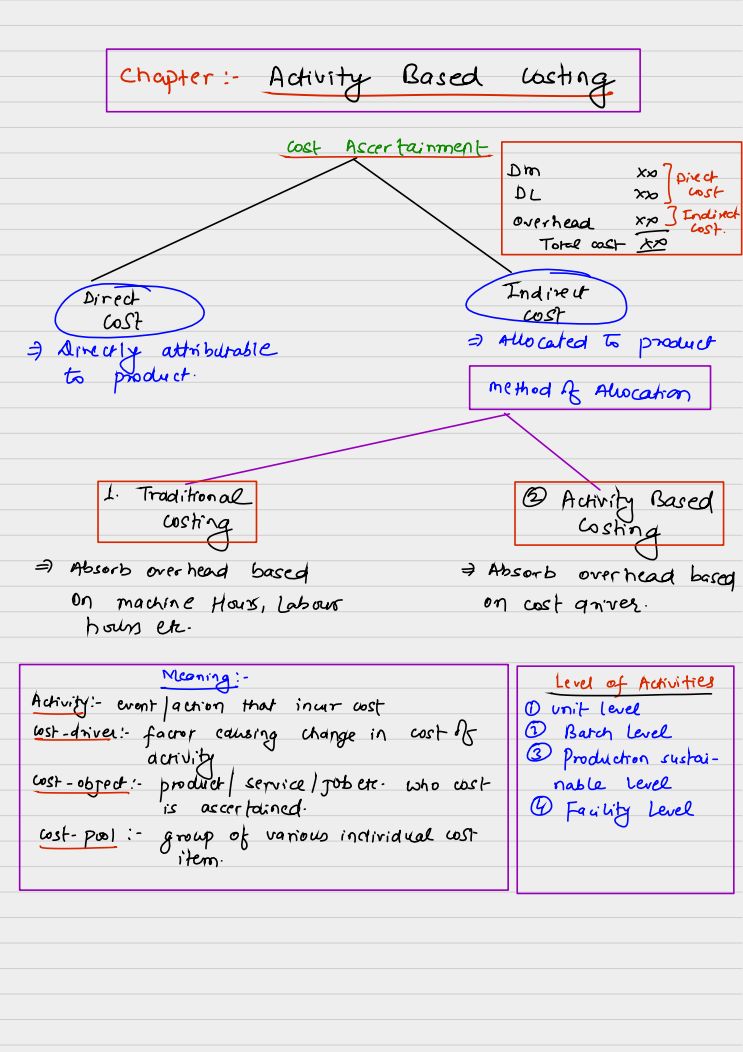 Chapter :- Activity Based Costing
Cost Ascertainment
Dm xx
DL xx
Direct cost
overhead xx
Indirect cost.
Total cost xx
Direct
cost
Indirect
cost
⇒ Directly attributable
to product.
⇒ Allocated to product
method of Allocation
1. Traditional
costing
② Activity Based
Costing
⇒ Absorb overhead based
on machine Hours, Labour
hours etc.
⇒ Absorb overhead based
on cost driver.
Meaning :-
Activity :- event/action that incur cost
cost-driver :- factor causing change in cost of
activity
cost-object :- product/service/job etc. who cost
is ascertained.
cost-pool :- group of various individual cost
item.
Level of Activities
① unit level
② Batch Level
③ Production sustai-
nable Level
④ Facility Level